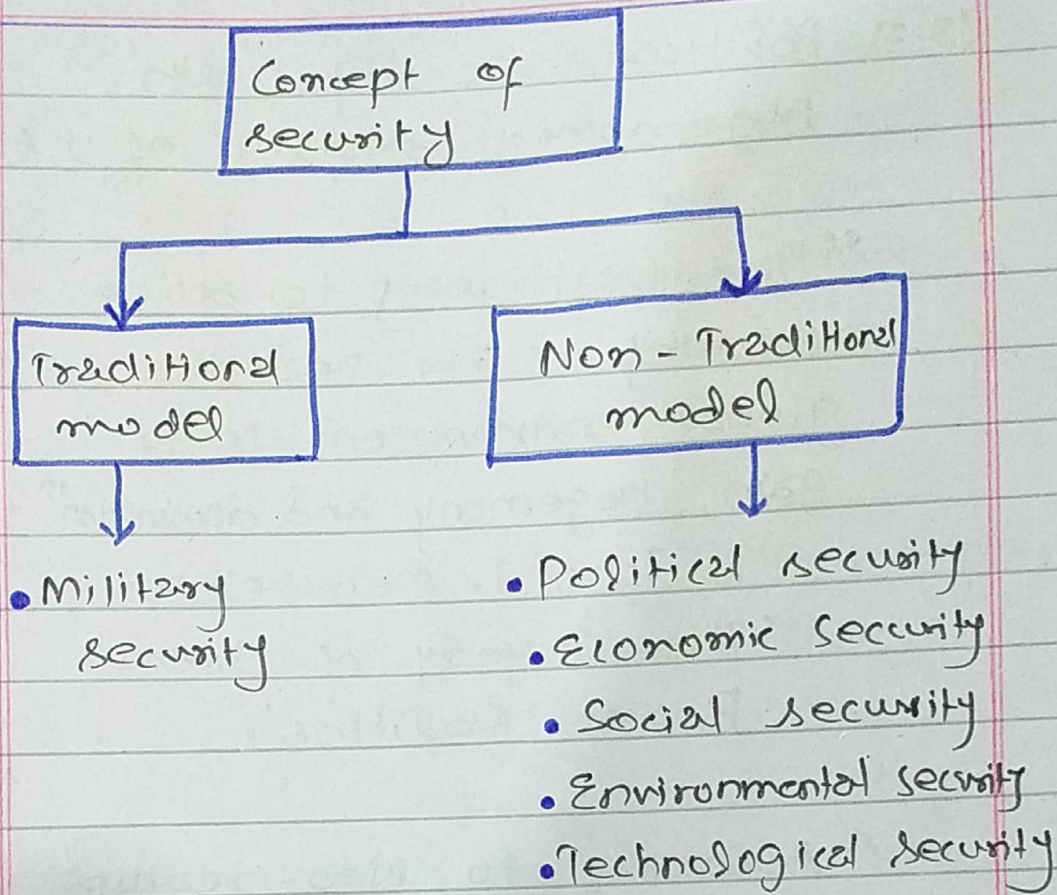 Concept of
security
Traditional
model
Non - Traditional
model
• Military
security
• Political security
• Economic security
• Social security
• Environmental security
• Technological security